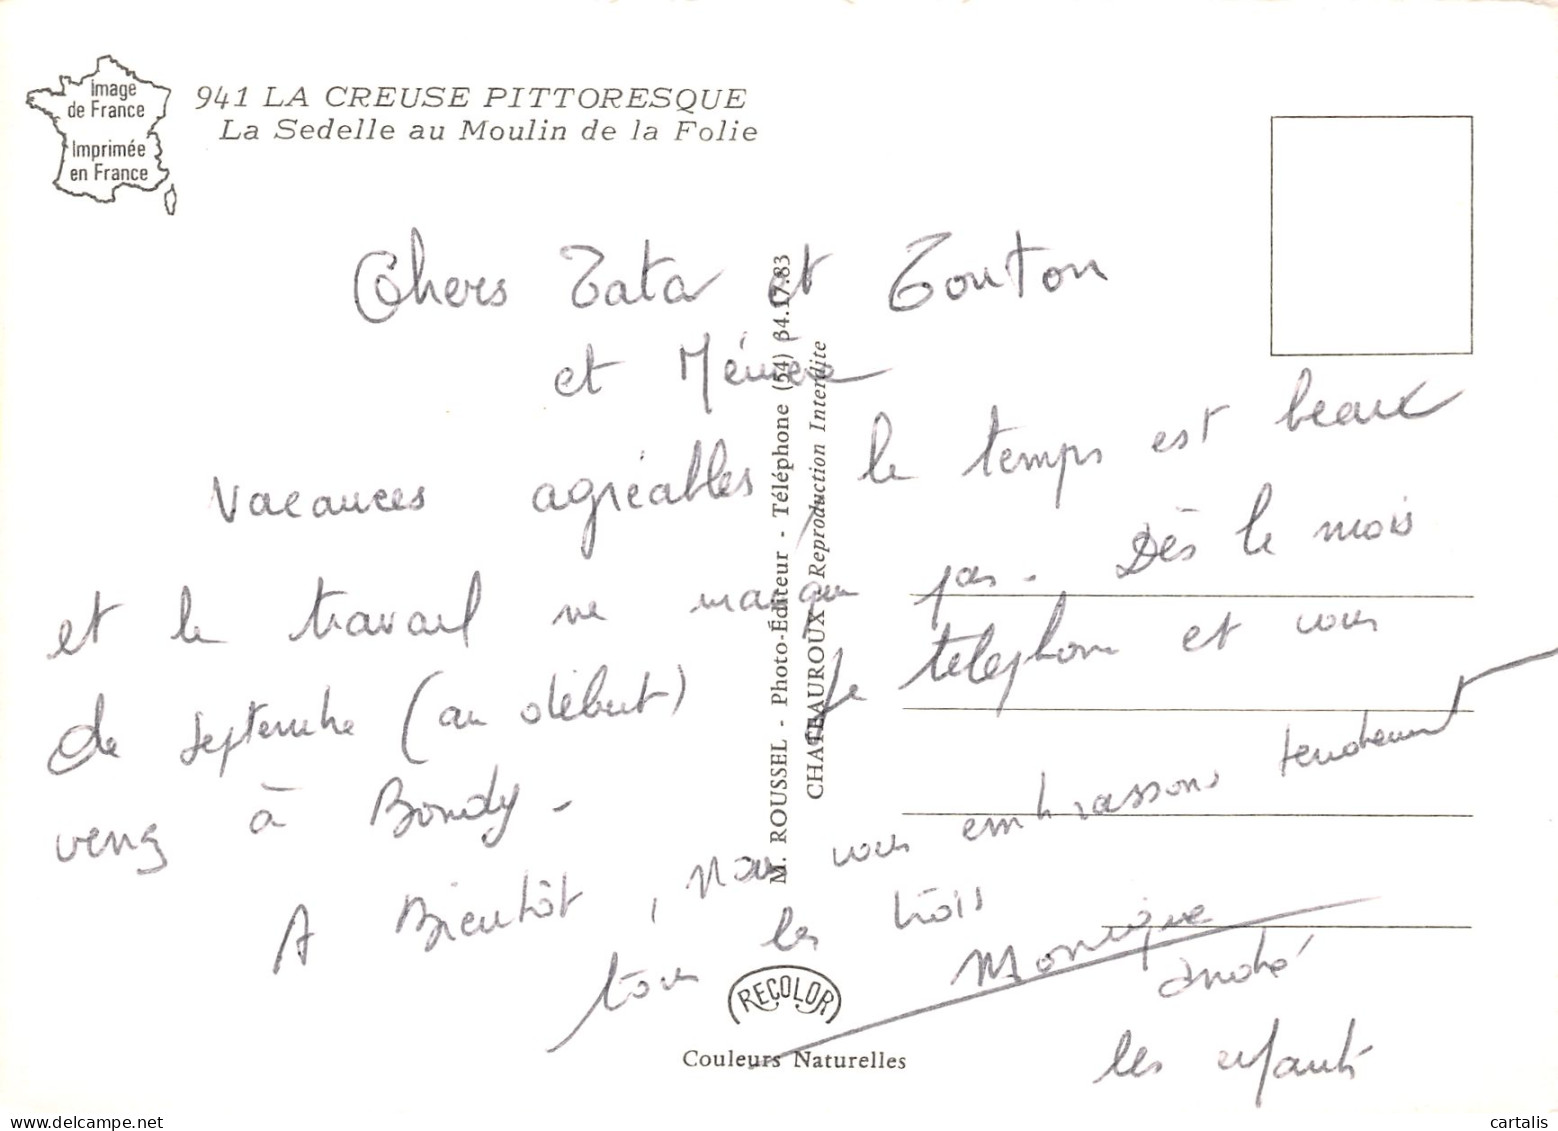 Image
de France
Imprimée
en France
941 LA CREUSE PITTORESQUE
La Sedelle au Moulin de la Folie
Chers Tata et Tonton
et Mémère
Vacances agréables, le temps est beau
et le travail ne manque pas. Dès le mois
de septembre (au début) je téléphone et vous
venez à Bondy -
A Bientôt, nous vous embrassons tendrement
tous les trois
Monique
André
les enfants
M. ROUSSEL - Photo-Éditeur - Téléphone (54) 34.17.83
CHATEAUROUX - Reproduction Interdite
RECOLOR
Couleurs Naturelles
cartalis